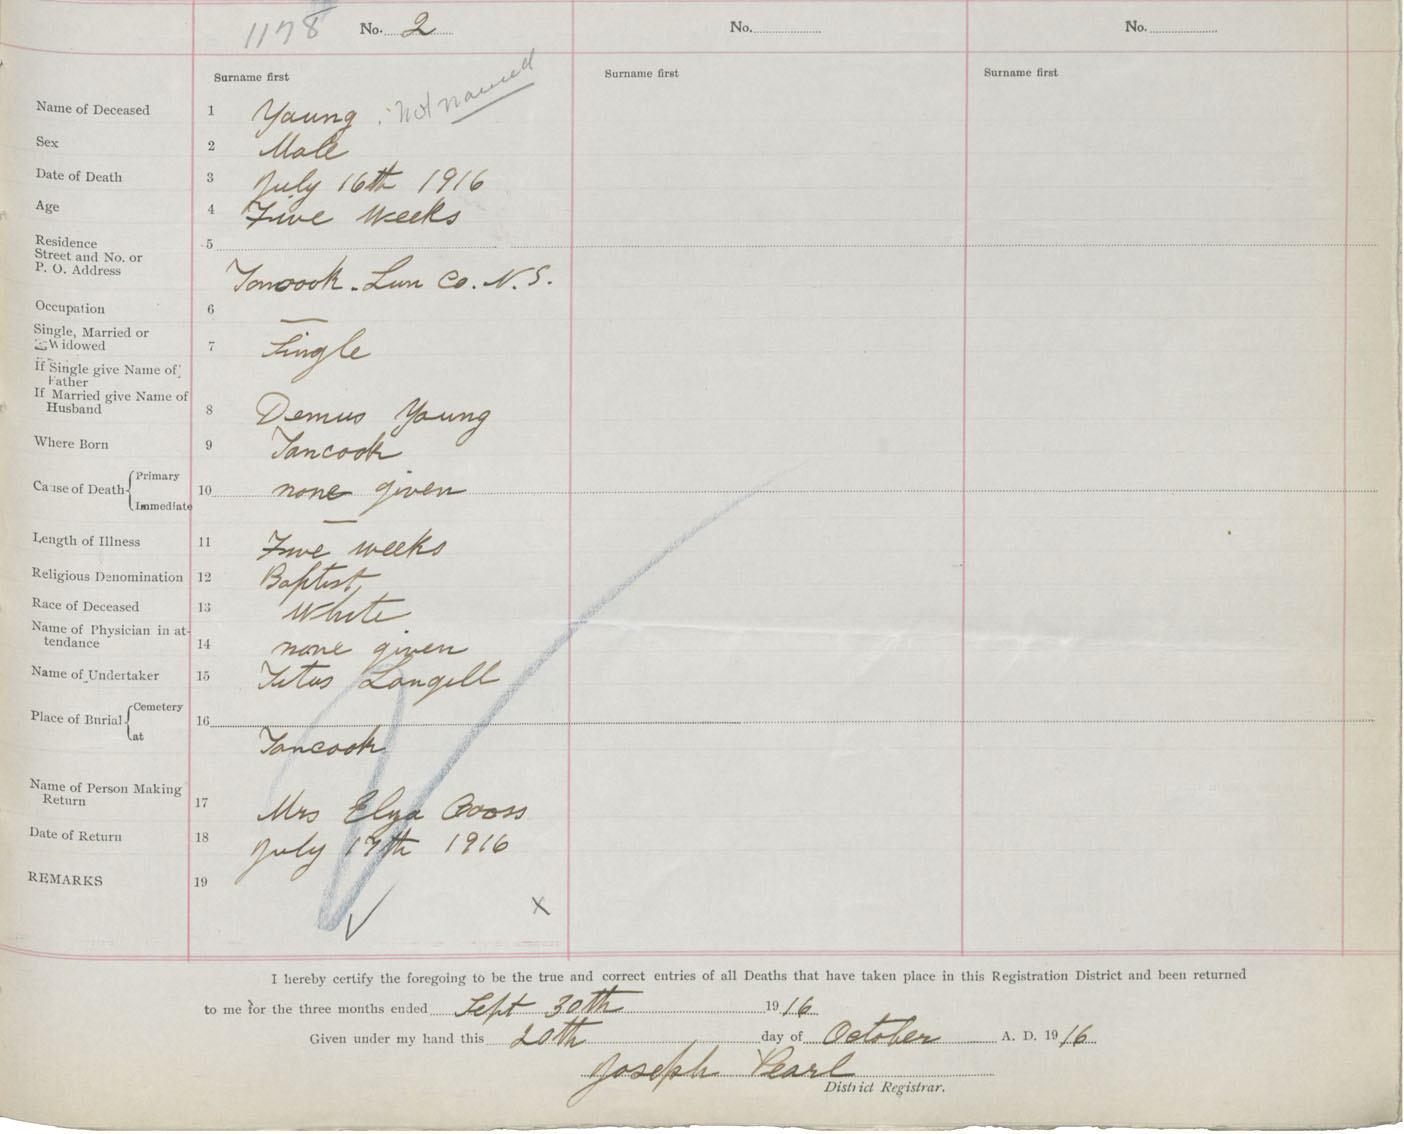 1178 No. 2 No. No.
Surname first Surname first Surname first
Name of Deceased 1 Young not named
Sex 2 Male
Date of Death 3 July 16th 1916
Age 4 Five weeks
Residence 5
Street and No. or
P. O. Address Tancook. Lun Co. N. S.
Occupation 6 —
Single, Married or
Widowed 7 Single
If Single give Name of
Father
If Married give Name of
Husband 8 Demus Young
Where Born 9 Tancook
Cause of Death { Primary 10 none given
Immediate —
Length of Illness 11 Five weeks
Religious Denomination 12 Baptist
Race of Deceased 13 White
Name of Physician in at-
tendance 14 none given
Name of Undertaker 15 Titus Langill
Place of Burial { Cemetery 16
at Tancook
Name of Person Making
Return 17 Mrs
Date of Return 18 July 17th 1916
REMARKS 19
I hereby certify the foregoing to be the true and correct entries of all Deaths that have taken place in this Registration District and been returned
to me for the three months ended Sept 30th 1916
Given under my hand this 20th day of October A. D. 1916
Joseph Pearl
District Registrar.